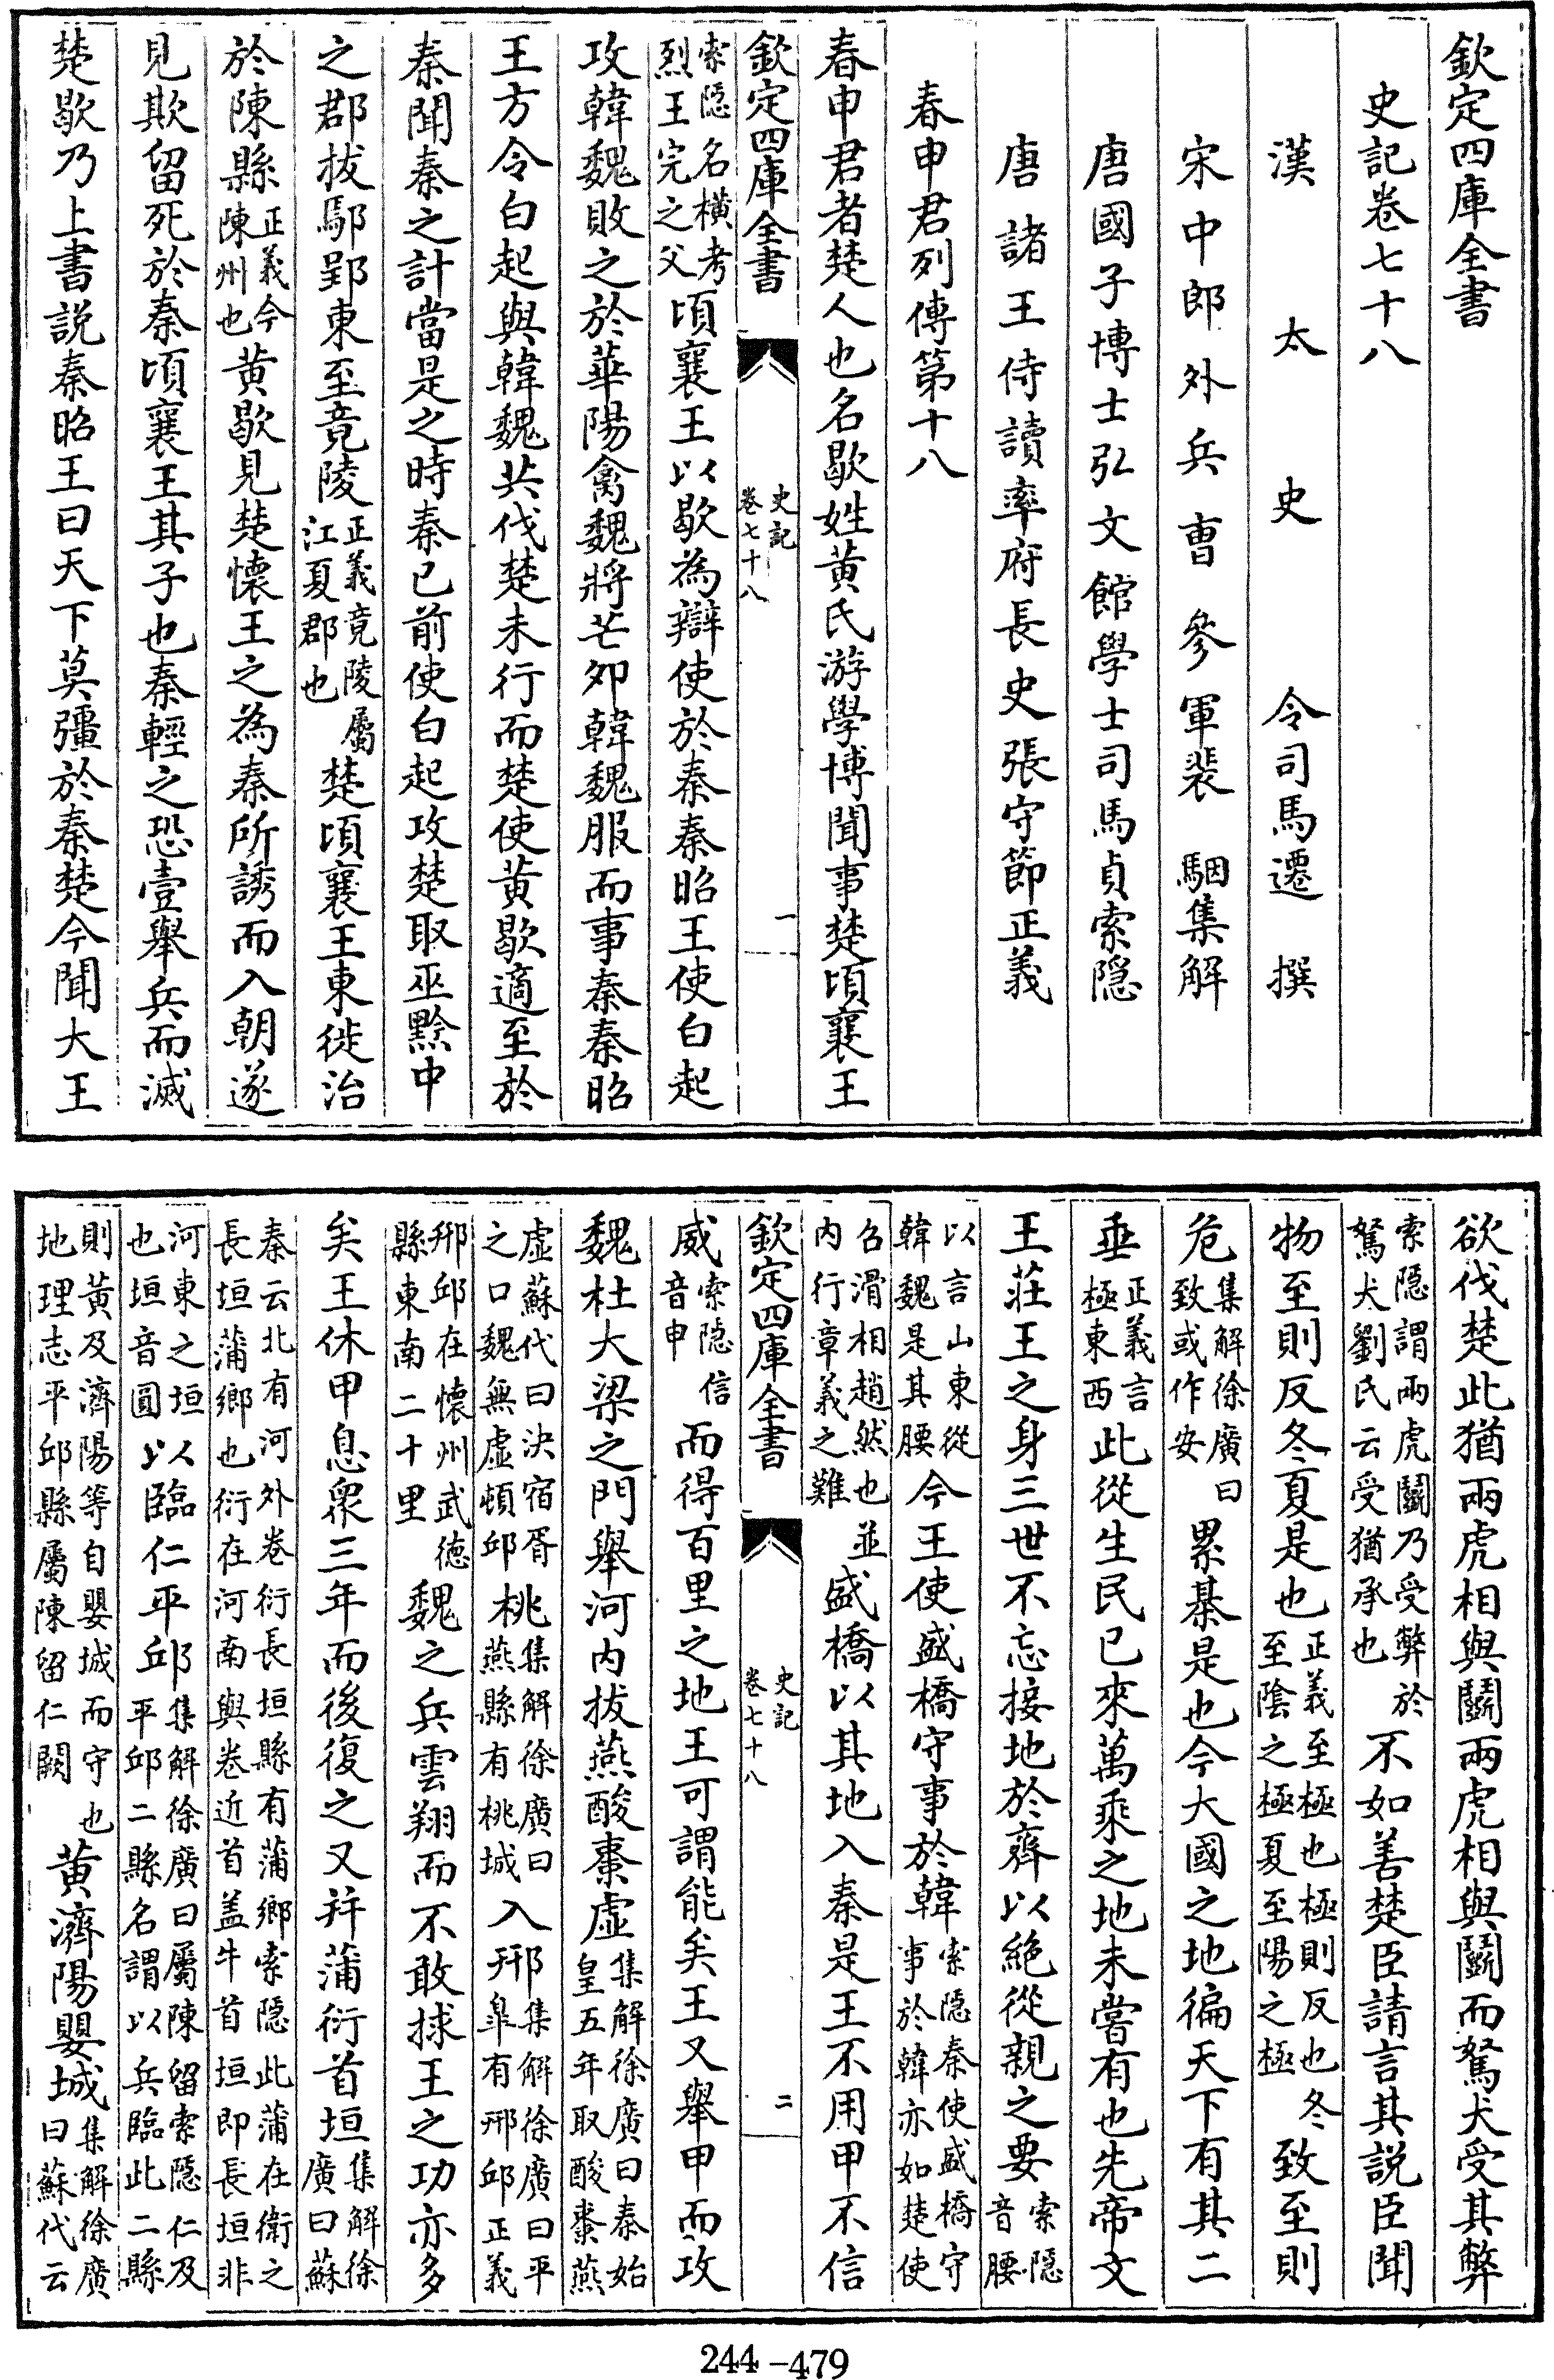 欽定四庫全書
史記卷七十八
漢太史令司馬遷撰
宋中郎外兵曹參軍裴駰集解
唐國子博士弘文館學士司馬貞索隱
唐諸王侍讀率府長史張守節正義
春申君列傳第十八
春申君者楚人也名歇姓黃氏游學博聞事楚頃襄王
欽定四庫全書 史記卷七十八 一
索隱名橫考烈王完之父頃襄王以歇為辯使於秦秦昭王使白起
攻韓魏敗之於華陽禽魏將芒夘韓魏服而事秦秦昭
王方令白起與韓魏共伐楚未行而楚使黃歇適至於
秦聞秦之計當是之時秦已前使白起攻楚取巫黔中
之郡拔鄢郢東至竟陵正義竟陵屬江夏郡也楚頃襄王東徙治
於陳縣正義今陳州也黃歇見楚懷王之為秦所誘而入朝遂
見欺留死於秦頃襄王其子也秦輕之恐壹舉兵而滅
楚歇乃上書説秦昭王曰天下莫彊於秦楚今聞大王
欲伐楚此猶兩虎相與鬭兩虎相與鬭而駑犬受其弊
索隱謂兩虎鬭乃受弊於駑犬劉氏云受猶承也不如善楚臣請言其説臣聞
物至則反冬夏是也正義至極也極則反也冬至陰之極夏至陽之極致至則
危集解徐廣曰致或作安累棊是也今大國之地徧天下有其二
垂正義言極東西此從生民已來萬乘之地未嘗有也先帝文
王莊王之身三世不忘接地於齊以絶從親之要索隱音腰
以言山東從韓魏是其腰今王使盛橋守事於韓索隱秦使盛橋守事於韓亦如楚使
召滑相趙然也並内行章義之難盛橋以其地入秦是王不用甲不信
欽定四庫全書 史記卷七十八 二
威索隱信音申而得百里之地王可謂能矣王又舉甲而攻
魏杜大梁之門舉河内拔燕酸棗虛集解徐廣曰秦始皇五年取酸棗燕
虛蘇代曰決宿胥之口魏無虛頓邱桃集解徐廣曰燕縣有桃城入邢集解徐廣曰平臯有邢邱正義
邢邱在懷州武德縣東南二十里魏之兵雲翔而不敢捄王之功亦多
矣王休甲息衆三年而後復之又并蒲衍首垣集解徐廣曰蘇
秦云北有河外卷衍長垣縣有蒲鄉索隱此蒲在衛之長垣蒲鄉也衍在河南與卷近首盖牛首垣即長垣非
河東之垣也垣音圓以臨仁平邱集解徐廣曰屬陳留索隱仁及平邱二縣名謂以兵臨此二縣
則黃及濟陽等自嬰城而守也地理志平邱縣屬陳留仁闕黃濟陽嬰城集解徐廣曰蘇代云
244-479